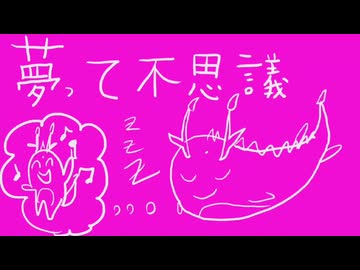 夢って不思議
z
z
z